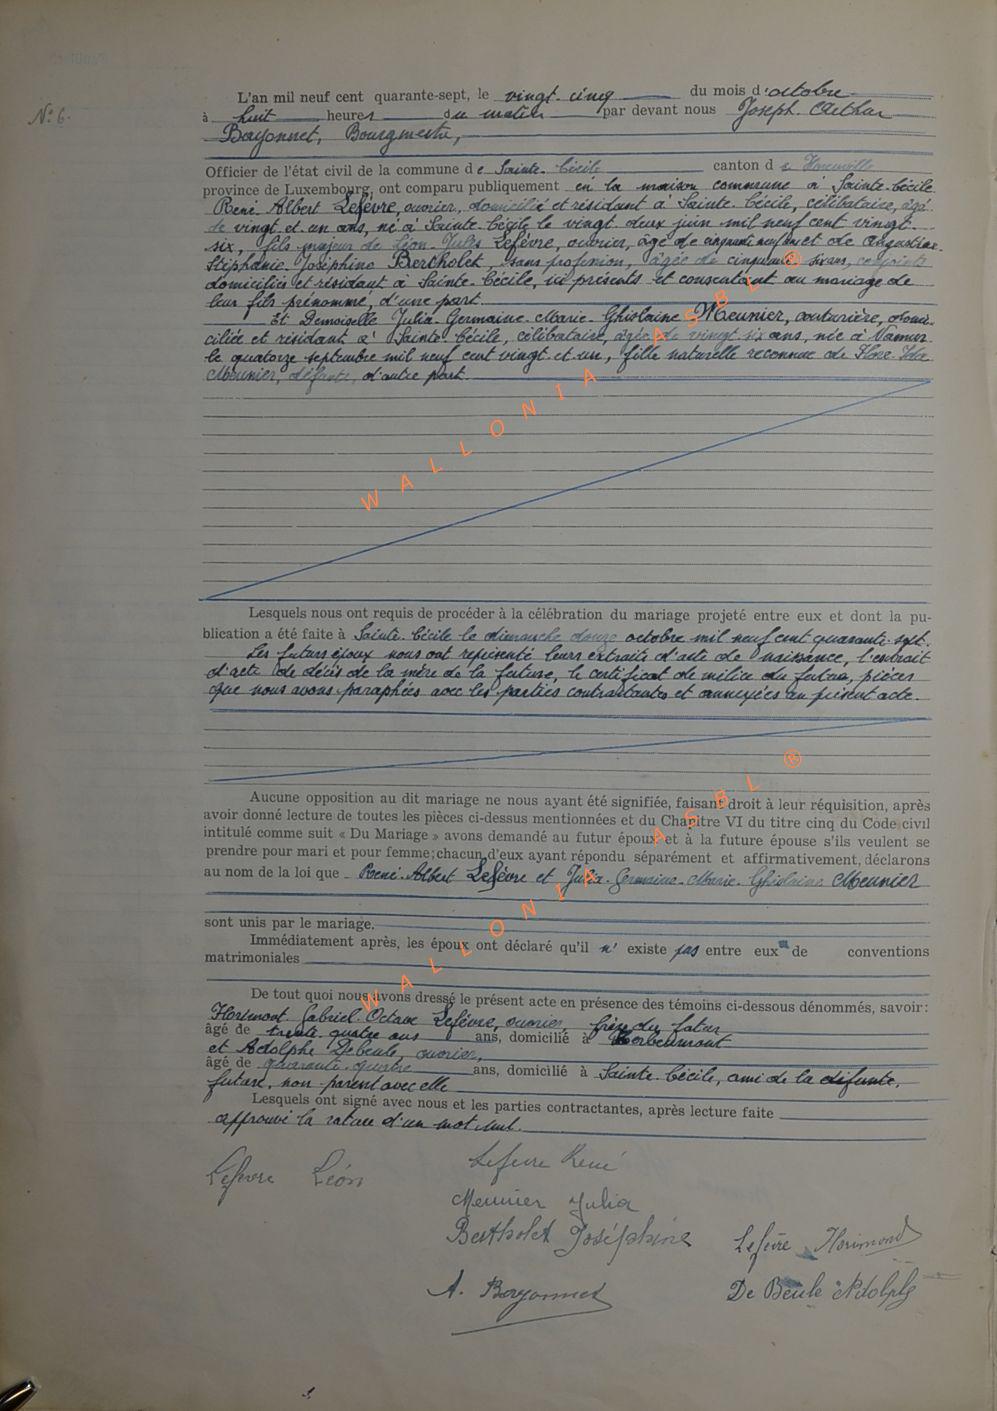 N° 6.
L'an mil neuf cent quarante-sept, le vingt-cinq du mois d'octobre
à huit heures du matin par devant nous Joseph Arthur
Bayonnet, Bourgmestre,
Officier de l'état civil de la commune de Sainte-Cécile canton de Florenville
province de Luxembourg, ont comparu publiquement en la maison commune à Sainte-Cécile
René-Albert Lefèvre, ouvrier, domicilié et résidant à Sainte-Cécile, célibataire, âgé
de vingt et un ans, né à Sainte-Cécile le vingt-deux juin mil neuf cent vingt-
six, fils majeur de Léon-Jules Lefèvre, ouvrier, âgé de cinquante neuf ans et de Augustine-
Stéphanie-Joséphine Bertholet, sans profession, âgée de cinquante six ans, conjoints
domiciliés et résidant à Sainte-Cécile, ici présents et consentant au mariage de
leur fils prénommé, d'une part.
Et Demoiselle Julia-Germaine-Marie-Ghislaine Meunier, couturière, domi-
ciliée et résidant à Sainte-Cécile, célibataire, âgée de vingt-six ans, née à Namur
le quatorze septembre mil neuf cent vingt-et-un, fille naturelle reconnue de Flore-Ida
Meunier, défunte, d'autre part.
Lesquels nous ont requis de procéder à la célébration du mariage projeté entre eux et dont la pu-
blication a été faite à Sainte-Cécile le dimanche douze octobre mil neuf cent quarante-sept.
Les futurs époux nous ont représenté leurs extraits d'acte de naissance, l'extrait
d'acte de décès de la mère de la future, le certificat de milice du futur, pièces
que nous avons paraphées avec les parties contractantes et annexées au présent acte.
Aucune opposition au dit mariage ne nous ayant été signifiée, faisant droit à leur réquisition, après
avoir donné lecture de toutes les pièces ci-dessus mentionnées et du Chapitre VI du titre cinq du Code civil
intitulé comme suit « Du Mariage » avons demandé au futur époux et à la future épouse s'ils veulent se
prendre pour mari et pour femme; chacun d'eux ayant répondu séparément et affirmativement, déclarons
au nom de la loi que René-Albert Lefèvre et Julia-Germaine-Marie-Ghislaine Meunier
sont unis par le mariage.
Immédiatement après, les époux ont déclaré qu'il n'existe pas entre eux de conventions
matrimoniales
De tout quoi nous avons dressé le présent acte en présence des témoins ci-dessous dénommés, savoir:
Florimont-Gabriel-Octave Lefèvre, ouvrier, frère du futur
âgé de trente-quatre ans ans, domicilié à Herbeumont
et Adolphe Debeule, ouvrier,
âgé de quarante-quatre ans, domicilié à Sainte-Cécile, ami de la défunte,
future, non parent avec elle
Lesquels ont signé avec nous et les parties contractantes, après lecture faite
approuvé la rature d'un mot nul.
Lefevre René
Lefevre Léon
Meunier Julia
Bertholet Joséphine
Lefèvre Florimond
A. Bayonnet
De Beule Adolphe
WALLONIA ASBL ®
WALLONIA ASBL ®